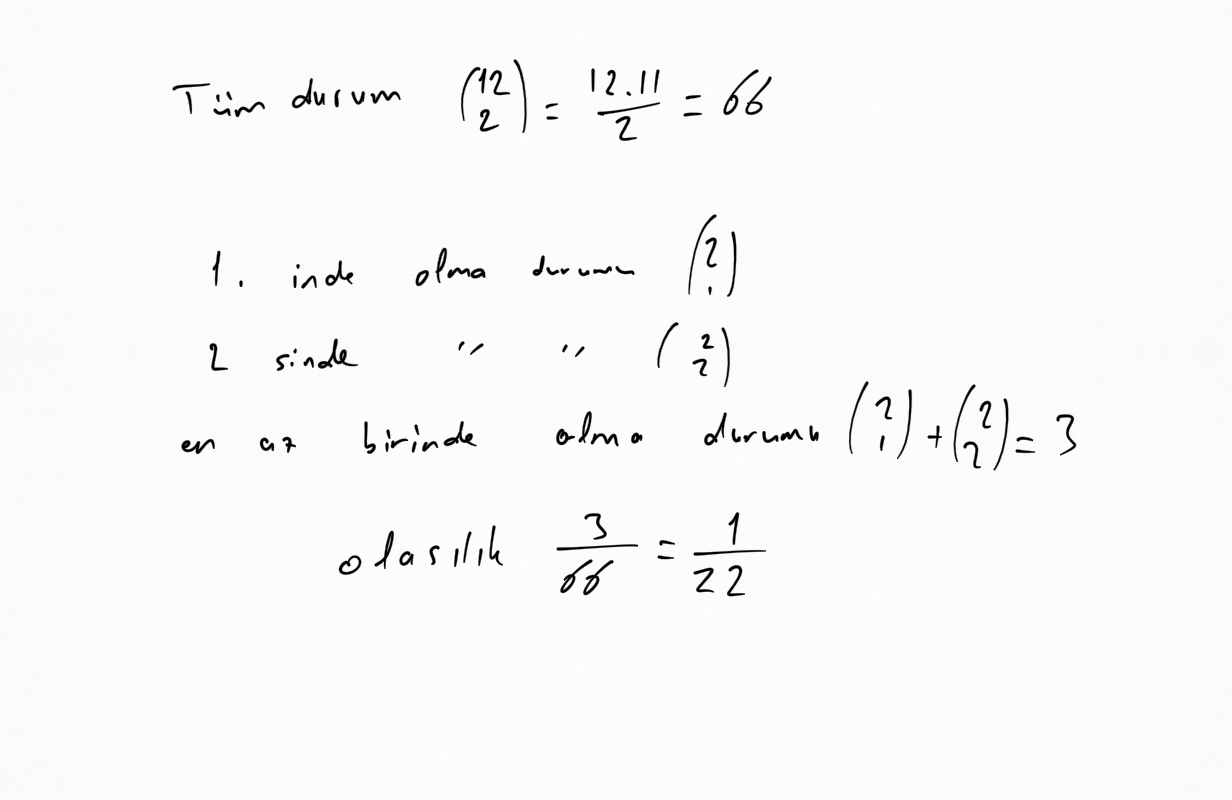 Tüm durum (12 2) = 12.11 / 2 = 66
1. inde olma durumu (2 1)
2 sinde " " (2 2)
en az birinde olma durumu (2 1) + (2 2) = 3
olasılık 3/66 = 1/22